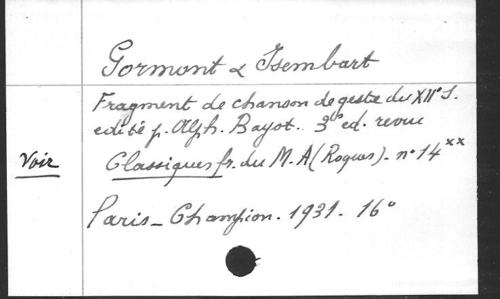 Gormont & Isembart
Fragment de chanson de geste du XIIe S.
edité p. Alph. Bayot. 3e ed. revue
Voir Classiques fr. du M. A (Roques). n° 14xx
Paris - Champion. 1931. 16°